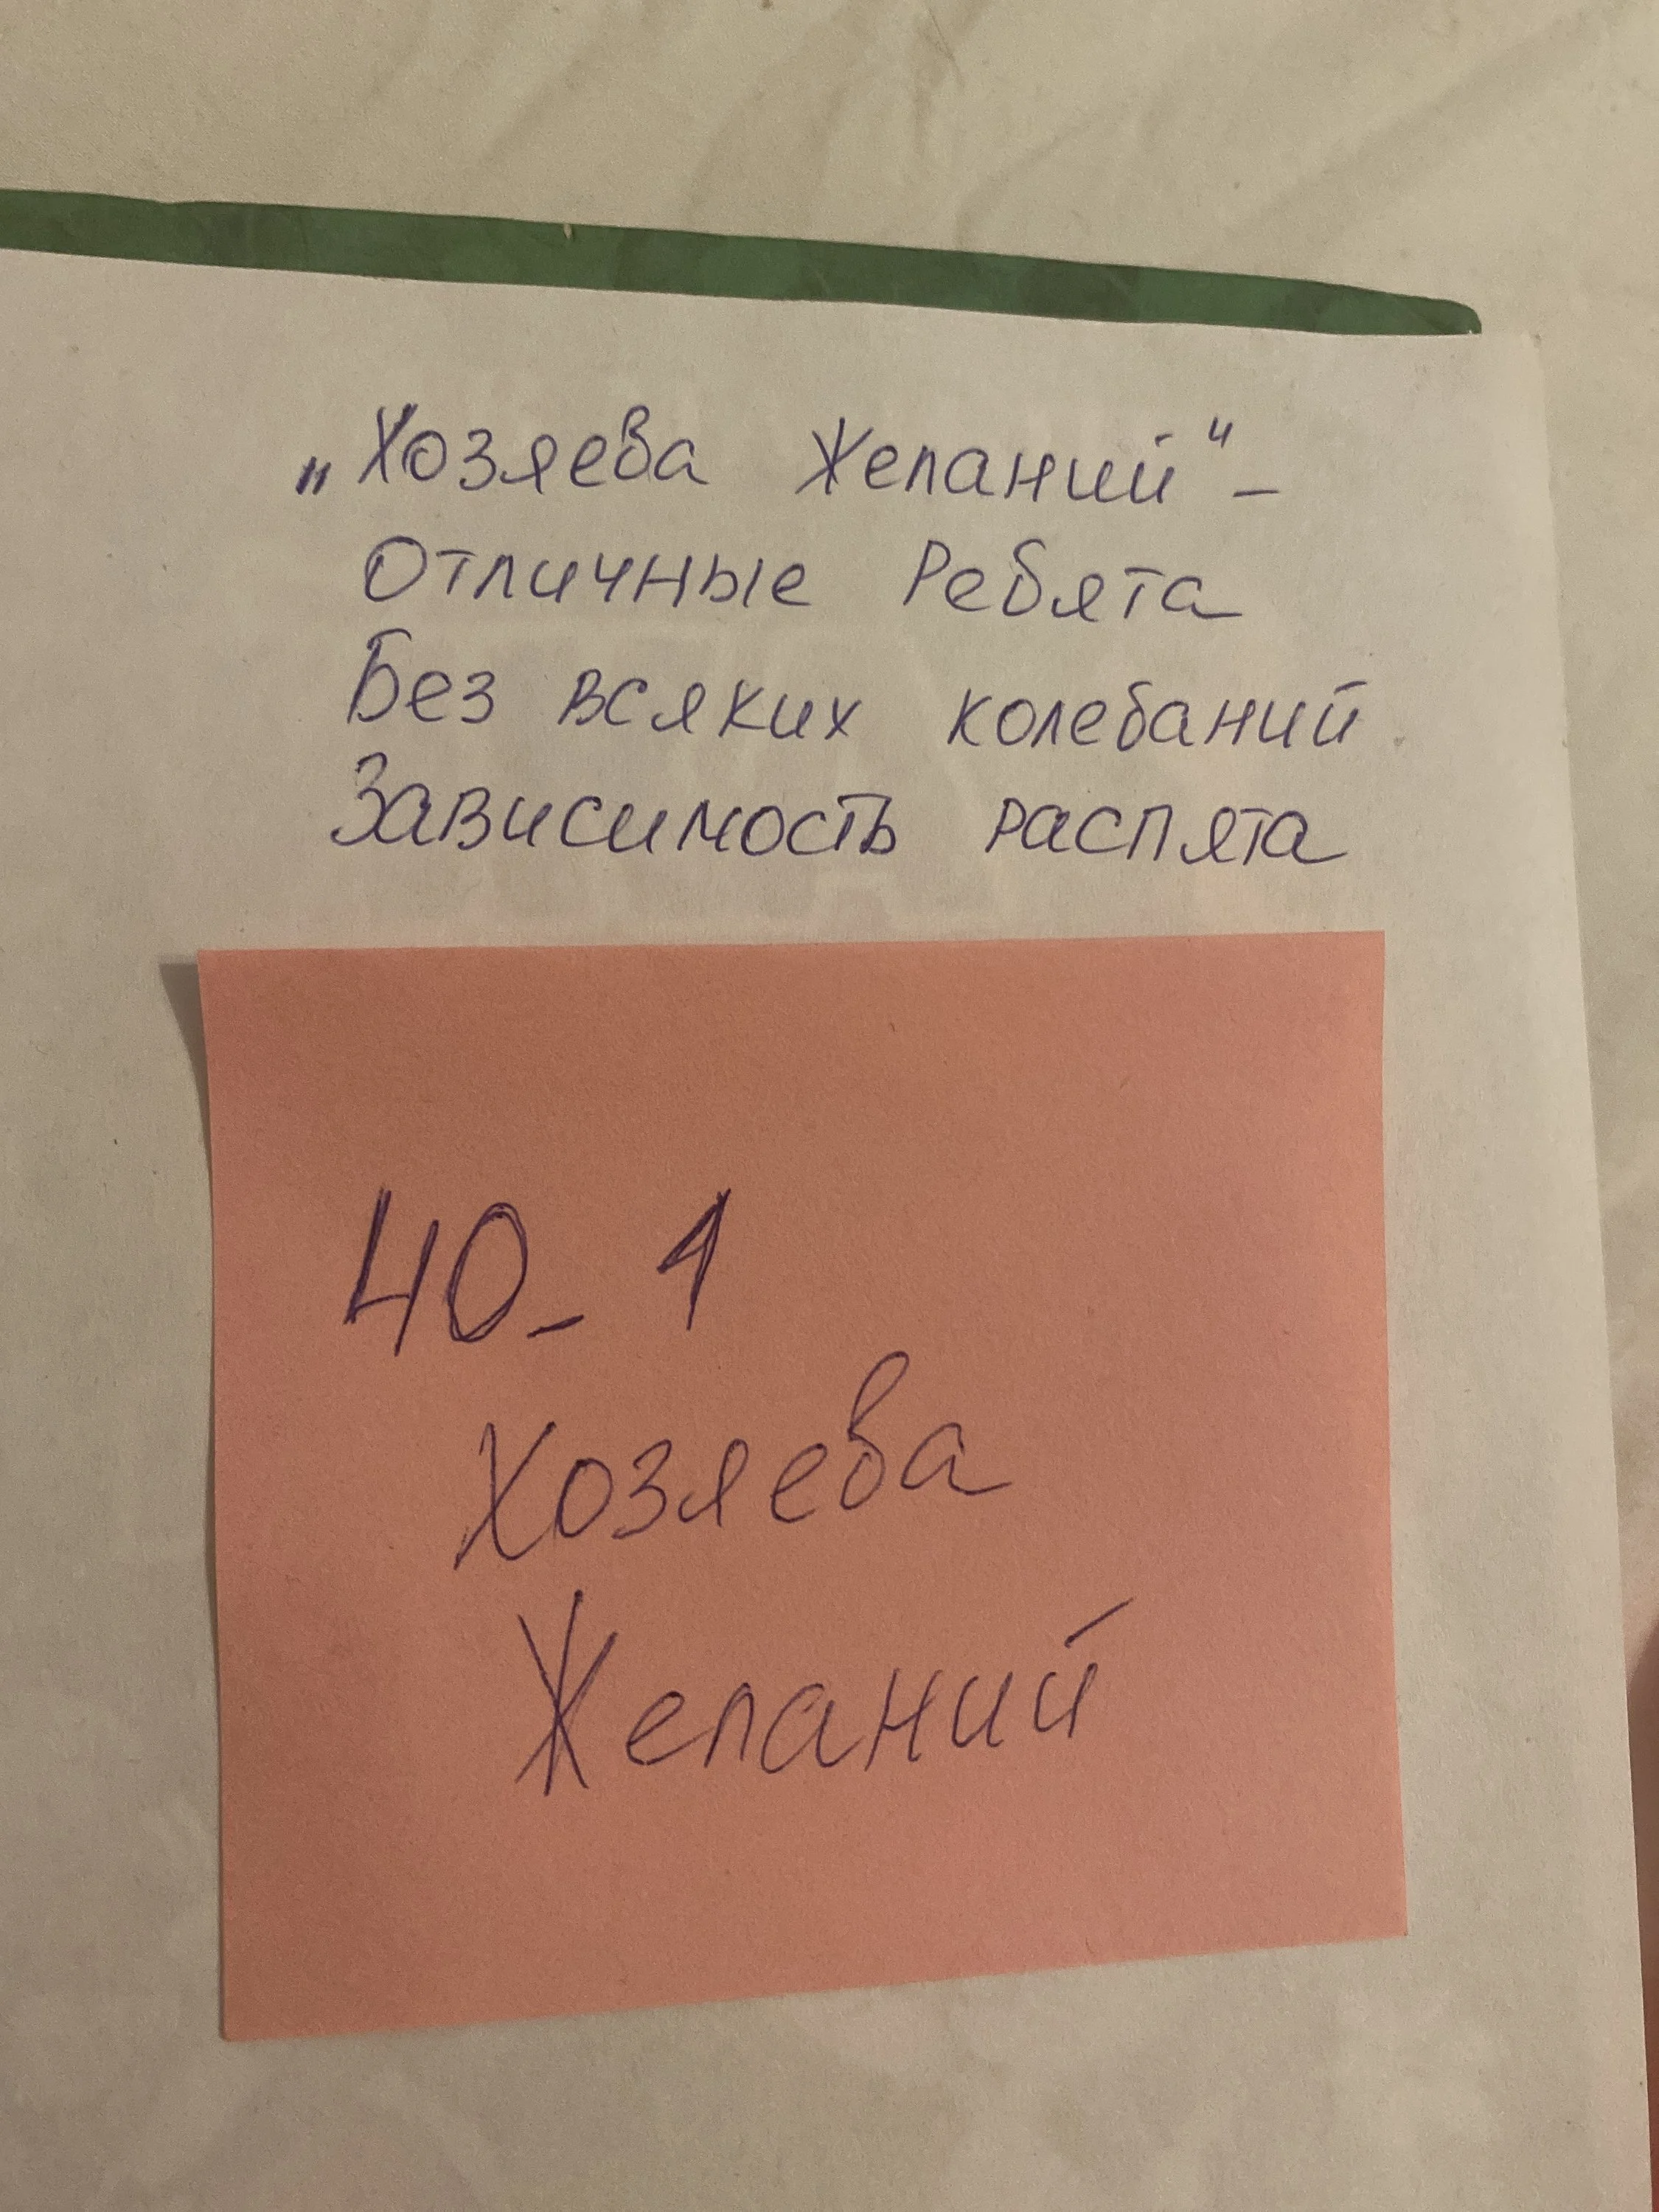 „Хозяева Желаний“ -
Отличные Ребята
Без всяких колебаний
Зависимость распята
40 - 1
Хозяева
Желаний